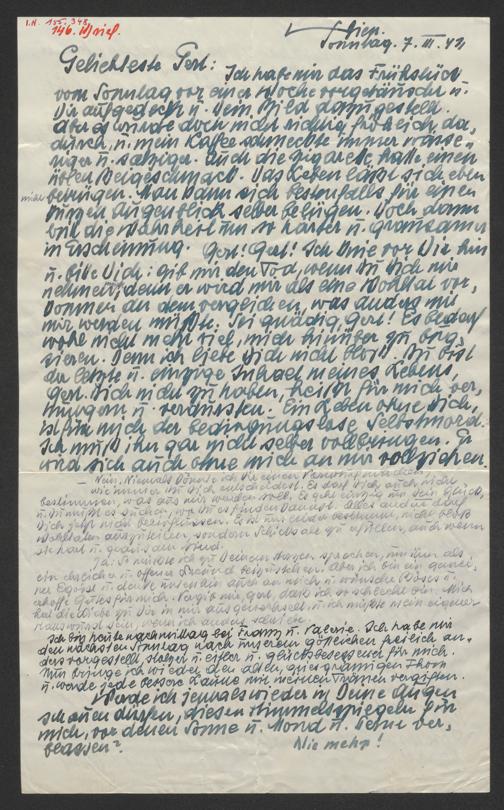 I.N. 155.348
146. Brief.
Wien.
Sonntag. 7. III. 42
Geliebteste Gert:
Ich habe mir das Frühstück
vom Sonntag vor einer Woche vorgetäuscht u.
Dir aufgedeckt u. Dein Bild dazugestellt.
Aber es wurde doch nicht richtig fröhlich da-
durch, u. mein Kaffee schmeckte immer wässe-
riger u. salziger. Auch die Zigarette hatte einen
üblen Beigeschmack. Das Leben lässt sich eben
nicht
betrügen. Man kann sich bestenfalls für einen
Augenblick selber belügen. Doch dann
tritt die Wahrheit um so härter u. grausamer
in Erscheinung. Gert! Gert! Ich knie vor Dir hin
u. bitte Dich: gib mir den Tod, wenn Du Dich mir
nehmen; denn er wird mir als eine Wohltat vor-
kommen zu dem verglichen, was anders mit
mir werden müßte. Sei gnädig, Gert! Es bedarf
wohl nicht mehr viel, mich hinüber zu
Denn ich liebe Dich nicht bloß. Du bist
der letzte u. einzige Inhalt meines Lebens,
Gert. Dich nicht zu haben, heißt für mich ver-
hungern u. verdursten. Ein Leben ohne Dich,
ist für mich der bedingungslose Selbstmord.
Ich muß ihn gar nicht selber vollbringen. Er
wird sich auch ohne mich an mir vollziehen.
– Nein. Niemals könnte ich Dir einen
wie immer Du Dich entscheidest. Es darf Dich auch nicht
bestimmen, was aus mir werden soll. Es geht einzig um Dein Glück,
u. Du mußt es suchen, wo Du es finden kannst. Alles andere darf
Dich jetzt nicht beeinflussen. Es ist uns eben bestimmt, nicht bloß
Wohltaten auszuteilen, sondern Schicksale zu erfüllen, auch wenn
sie hart u. grausam sind.
Ja. So müßte ich zu Deinem Herzen sprechen, um ihm als
ein ehrlicher u. offener Freund beizustehen. Aber ich bin ein gemei-
ner Egoist u. denke immerhin auch an mich u. wünsche Böses u.
erhoffe Gutes für mich. Vergib mir, Gert, daß ich so schlecht bin. Mich
hat die Liebe zu Dir in mir ausgewechselt, u. ich müßte mein eigener
sein, wenn ich anders schriebe.
Ich bin heute nachmittag bei Franzy u. Valerie. Ich habe mir
den nächsten Sonntag nach unserem göttlichen freilich an-
ders vorgestellt, stolzer u. edler u. glückbesessener für mich.
Nun bringe ich wieder den alten, griesgrämigen Thom
u. werde jede bessere Laune mit meinen Tränen vergiften.
Werde ich jemals wieder in Deine Augen
schauen dürfen, diesen Himmelsspiegeln für
mich, vor denen Sonne u. Mond u. Sterne ver-
blassen?
Nie mehr!